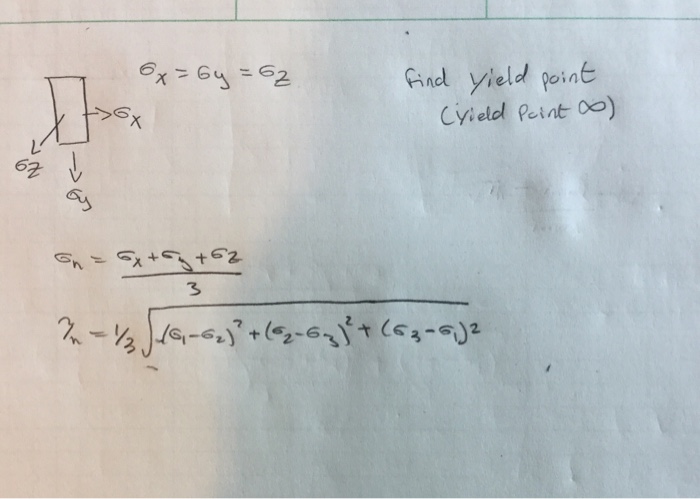 σx = σy = σz
find yield point
(yield point ∞)
σx
σz
σy
σn = σx+σy+σz
3
τn = 1/3 √(σ1-σ2)² + (σ2-σ3)² + (σ3-σ1)²